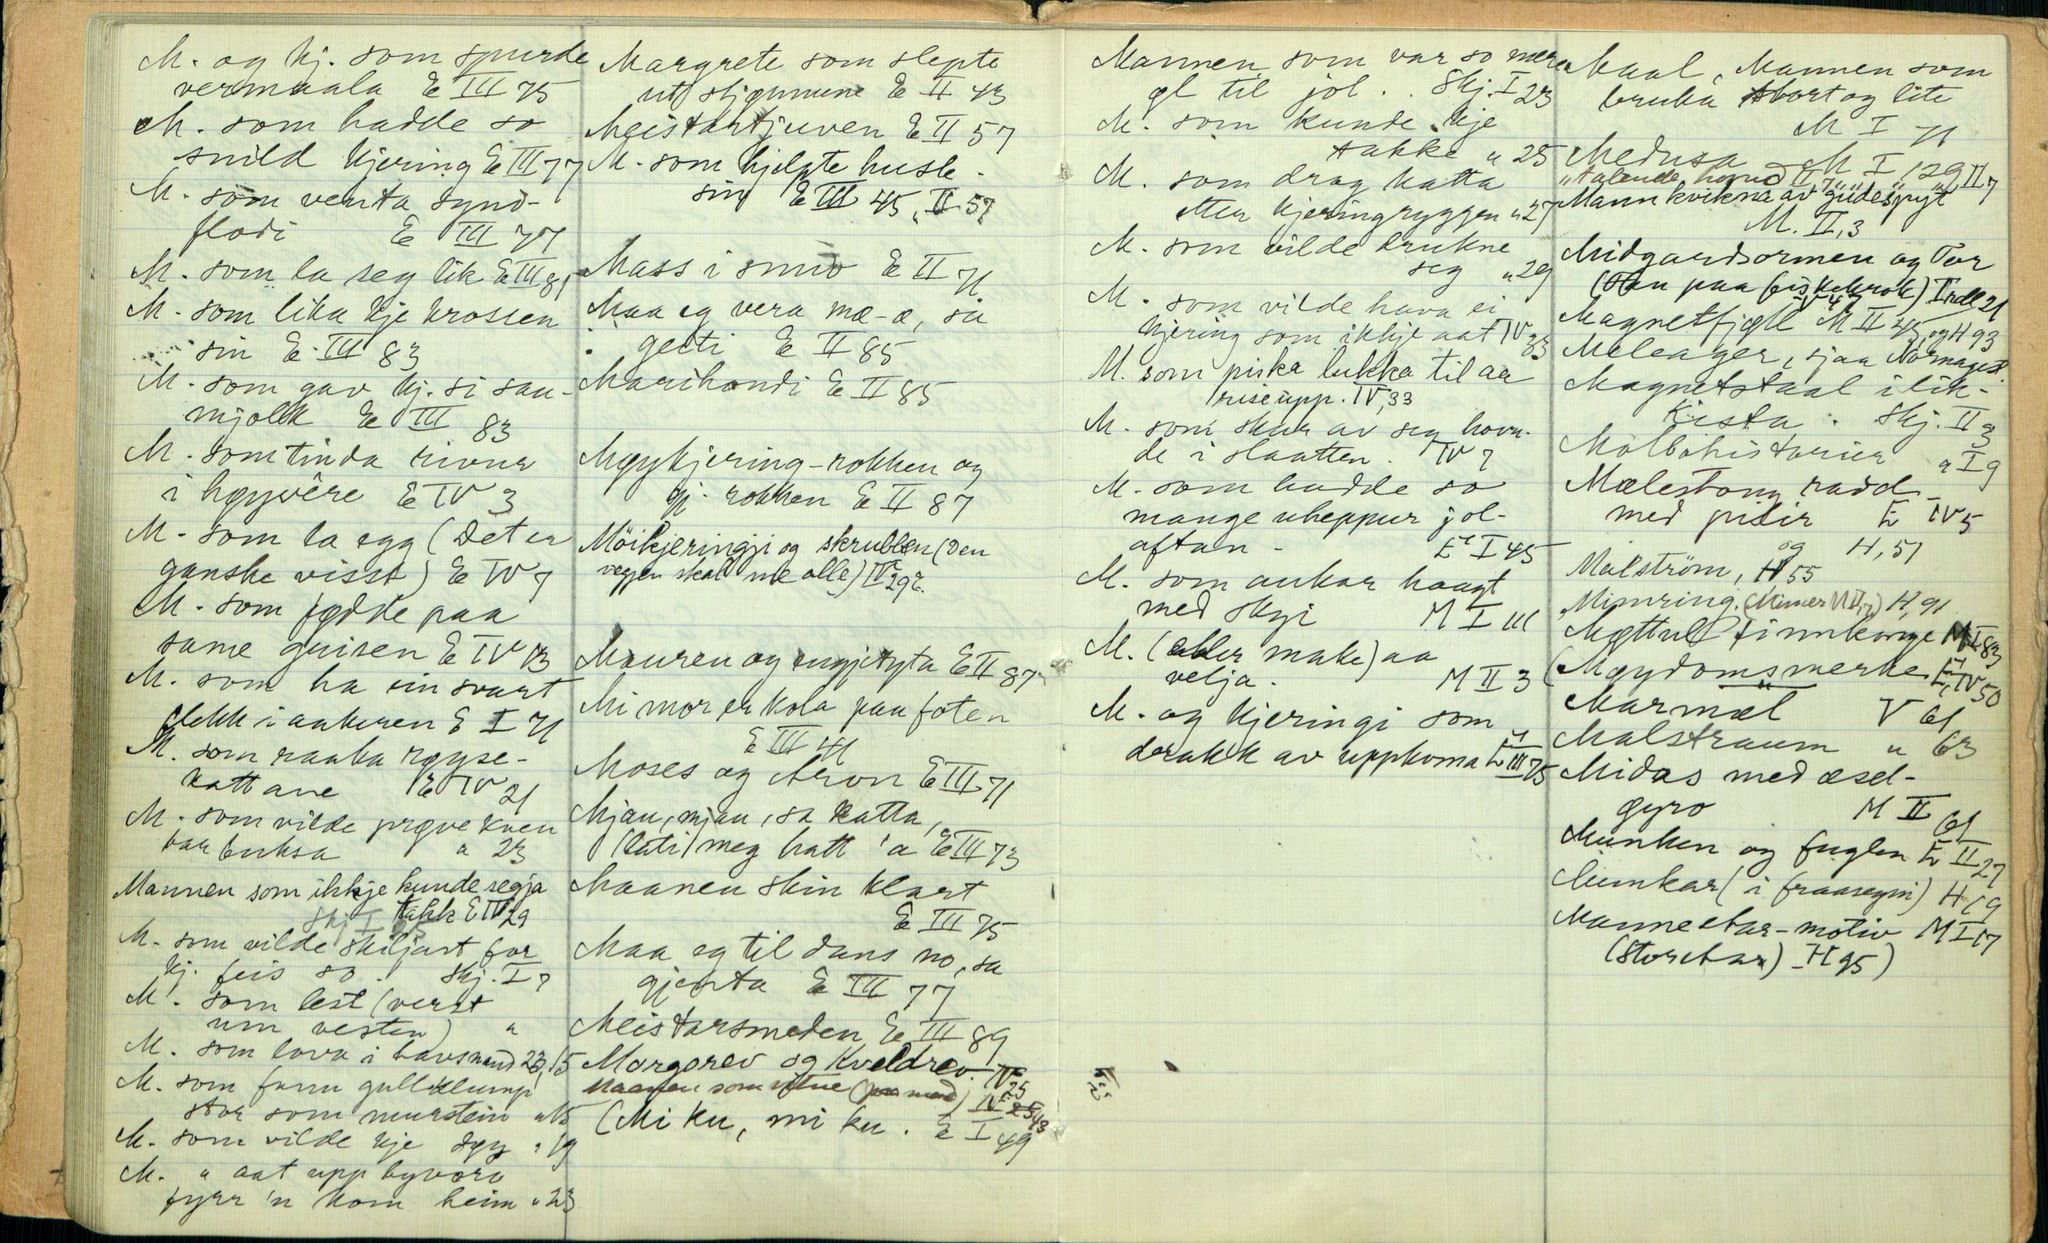 M. og kj. som spurde
vermaala E III 75
M. som hadde so
snild kjering E III 77
M. som venta synd-
flodi E III 77
M. som la seg lik E III 81
M. som lika kje krossen
sin E III 83
M. som gav kj. si sau-
mjølk E III 83
M. som tinda rivur
i høyvêre E IV 3
M. som la egg (Det er
ganske visst) E IV 7
M. som fødde paa
same guisen E IV 13
M. som ha ein svart
flekk i aakeren E I 71
M. som raaka røyse-
kattane E IV 21
M. som vilde prøve kven
bar buksa " 23
Mannen som ikkje kunde segja
takk E IV 29
Skj I 25
M. som vilde skiljast for
kj. feis so . Skj. I 7
M. som lest (verst
um vesten) "
M. som lova i havsnaud 23, 15
M. som fann gullklump
stor som murstein " 15
M. som vilde kje syg " 19
M. " aat upp byvara
fyrr 'n kom heim " 23
Margrete som slepte
ut stjønnune E II 43
Meistartjuven E II 57
M. som hjelpte husle-
sin E III 45, II 57
Mass i snuv E II 71
Maa eg vera mæ-æ, sa
geeti E II 85
Marihondi E II 85
Møykjering-rokken og
gj. rokken E II 87
Möikjeringji og skrubben (Den
vegjen skall me alle) IV 29
Mauren og engjetyta E II 87
Mi mor er kola paa foten
E III 41
Moses og Aron E III 71
Mjau, mjau, sa katta,
(lati) meg hatt 'a E III 73
Maanen skin klart
E III 75
Maa eg til dans no, sa
gjenta E III 77
Meistarsmeden E III 89
Morgorev og Kveldrev. IV 25
Maanen som vitne (paa mord) IV 23
(Mi ku, mi ku. E I 49
Mannen som var so mæra
gl til jol . . Skj. I 23
M. som kunde kje
takke " 25
M. som drog katta
etter kjeringryggen " 27
M. som vilde drukne
seg " 29
M. som vilde hava ei
kjering som ikkje aat IV 33
M. som piska lukka til aa
rise upp. IV, 33
M. som skar av seg hovu-
de i slaatten. IV 7
M. som hadde so
mange uheppur jol-
aftan - E I 45
M. som ankar haagt
med skyi M I 111
M. (eller make) aa
velja . M II 3
M. og kjeringi som
drakk av uppkoma E III 75
Maal, Mannen som
bruka stort og lite
M I 71
Medusa M I, 129, II 7
"talende hovud II 7
Mann kvikna av gudespyt
M. II, 3
Midgardsormen og Tor
(Han paa fiskekrok) I rell 21
IV 47
Magnetfjell M II 45, og H 93
Meleager, sjaa Nornagest.
Magnetstaal i lik-
kista . Skj. II 3
Molbohistorier " I 9
Mælestong radd-
med pisir E IV 5
og H, 51
Malström, H 55
Mimring. (Mimer M II, 7) H, 91
Møttul finnkonge M I 83
(Møydomsmerke E, IV 50
Marmæl V 61
Malstraum " 63
Midas med æsel-
øyro M II 61
Munken og fuglen E II 27
Munkar (i fraasegn) H 19
Mannebar-motiv M I 17
(Storebar) H 95)